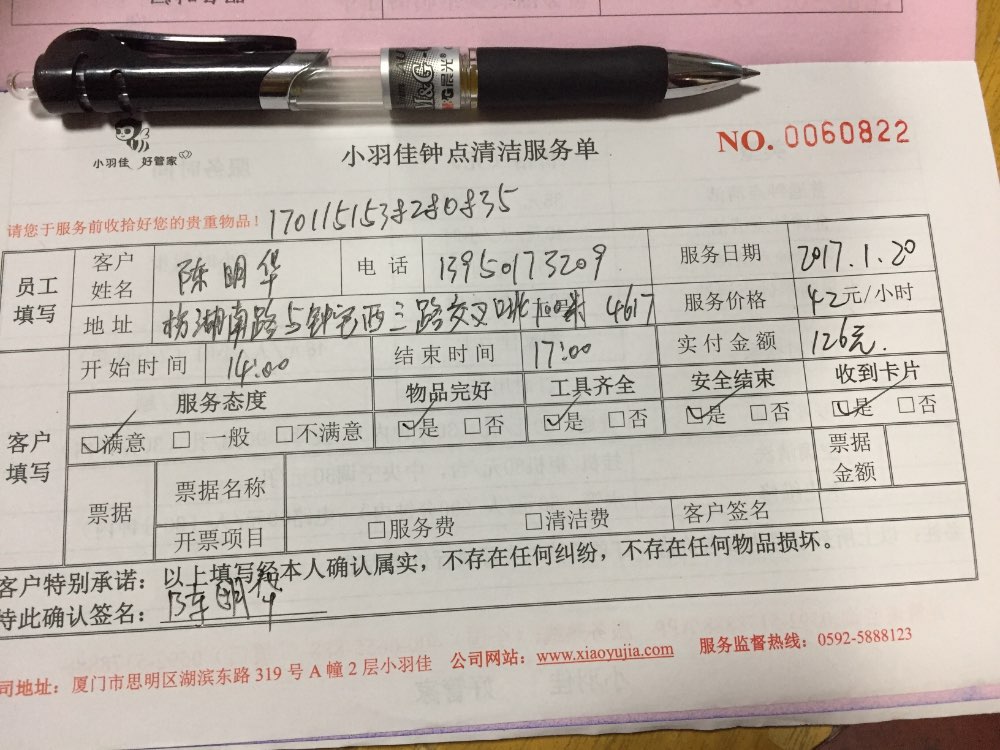 M&G 晨光
小羽佳 好管家
小羽佳钟点清洁服务单
NO. 0060822
请您于服务前收拾好您的贵重物品！
员工填写 客户姓名 陈明华 电话 13950173209 服务日期 2017.1.20
地址 枋湖南路与钟宅西三路交叉口北100米 4617 服务价格 42元/小时
客户填写 开始时间 14:00 结束时间 17:00 实付金额 126元.
服务态度 物品完好 工具齐全 安全结束 收到卡片
☑满意 □一般 □不满意 ☑是 □否 ☑是 □否 ☑是 □否 ☑是 □否
票据 票据名称 票据金额
开票项目 □服务费 □清洁费 客户签名
客户特别承诺：以上填写经本人确认属实，不存在任何纠纷，不存在任何物品损坏。
特此确认签名：陈明华
司地址：厦门市思明区湖滨东路 319 号 A 幢 2 层小羽佳 公司网站：www.xiaoyujia.com 服务监督热线：0592-5888123